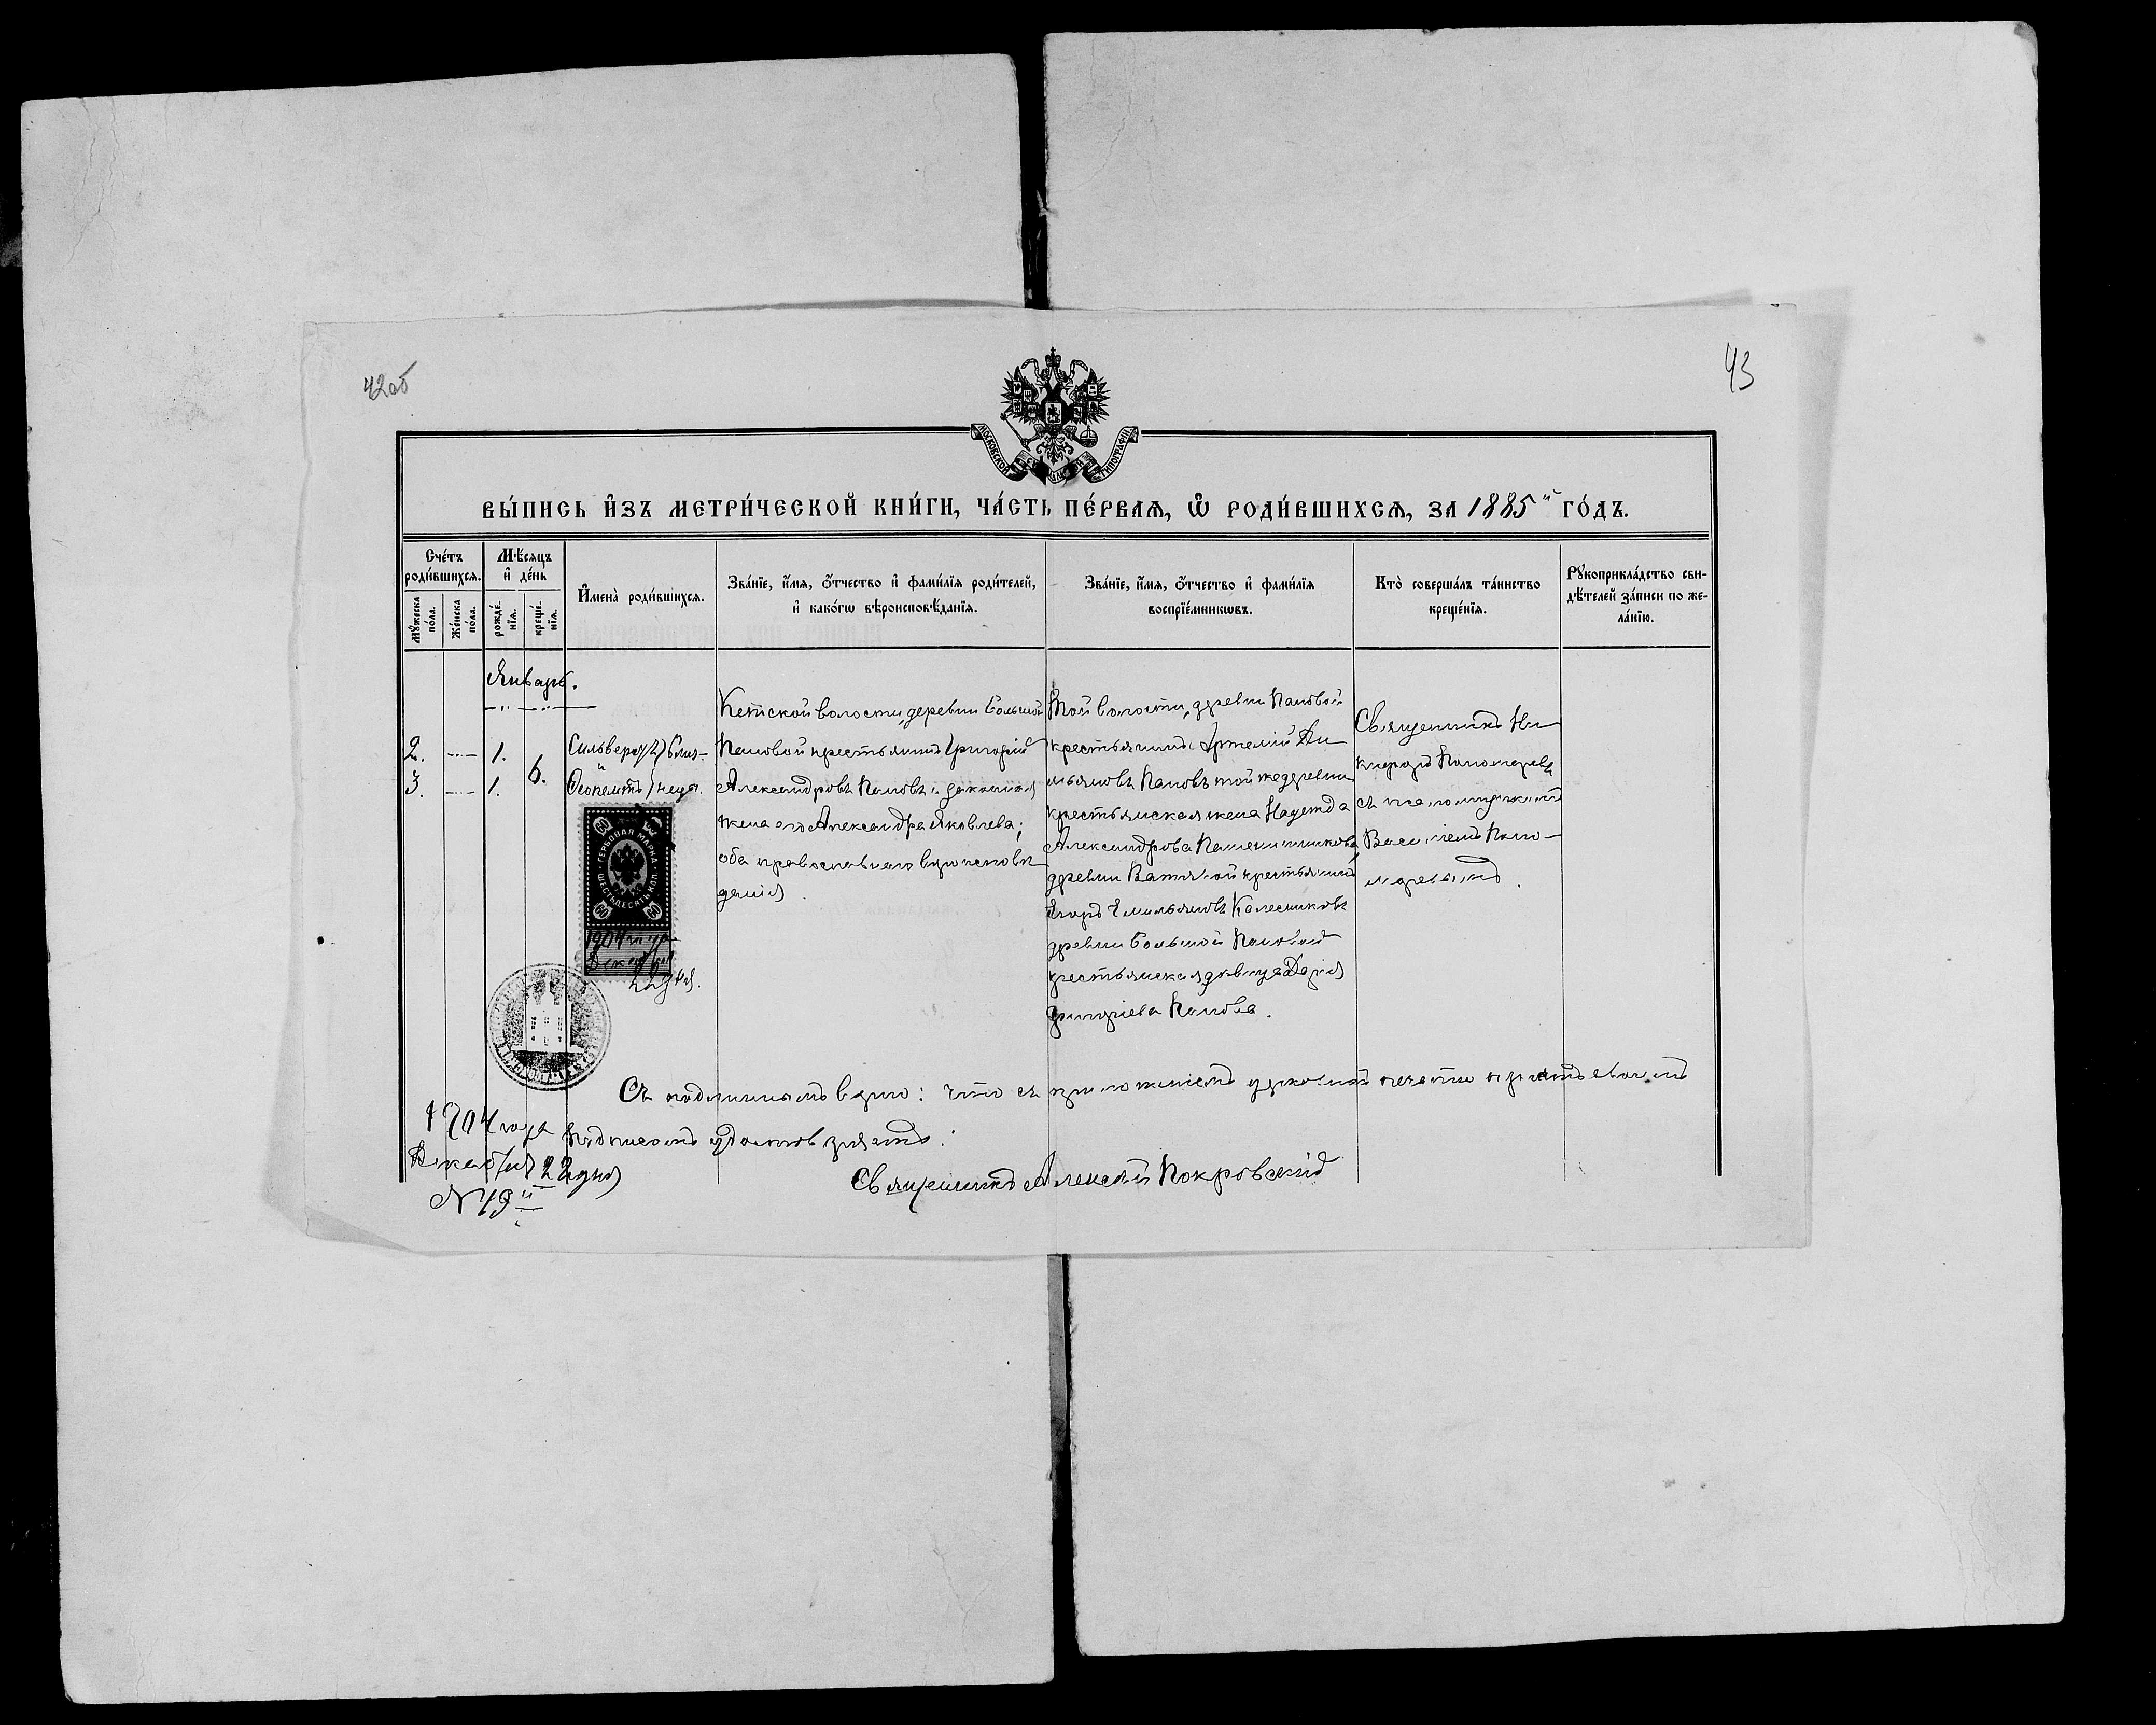 42об
43
МОСКОВСКОЙ СѴНОДАЛЬНОЙ ТИПОГРАФІИ
ВЫ́ПИСЬ И҆ЗЪ МЕТРИ́ЧЕСКОЙ КНИ́ГИ, ЧА́СТЬ ПЕ́РВАЯ, Ѡ҆ РОДИ́ВШИХСЯ, ЗА 1885й ГО́ДЪ.
Сче́тъ роди́вшихся.
Мꙋ́жеска по́ла.
Же́нска по́ла.
Мѣ́сяцъ и҆ де́нь
рожде́нїя.
креще́нїя.
И҆мена̀ роди́вшихся.
Зва́нїе, и҆́мя, ѻ҆́тчество и҆ фами́лїя роди́телей, и҆ како́гѡ вѣроисповѣ́данїя.
Зва́нїе, и҆́мя, ѻ҆́тчество и҆ фами́лїя воспрїе́мникѡвъ.
Кто̀ соверша́лъ та́инство креще́нїя.
Рꙋкоприкла́дство сви-
дѣ́телей за́писи по же-
ла́нїю.
Январь.
2.
3.
1.
1.
6.
Сильверстъ близ-
и
Ѳеопемптъ неца.
Кетской волости, деревни Большой
Пановой крестьянинъ Григорій
Александровъ Пановъ и законная
жена его Александра Яковлева;
оба православнаго вѣроисповѣ
данія.
Той волости, деревни Пановой
крестьянинъ Артемій
Пановъ той же деревни
крестьянская жена Надежда
Александрова
деревни крестьянинъ
Егоръ Емильяновъ Колесниковъ
деревни Большой Пановой
крестьянская дѣвица Дарія
Григоріева Панова.
Священникъ Ни
Пономаревъ
съ псаломщикомъ
Поно-
маревымъ.
ГЕРБОВАЯ МАРКА
ШЕСТЬДЕСЯТЪ КОП.
60
60
60
1904 года
Декабря
22 дня.
Съ подлиннымъ вѣрно: что съ приложеніемъ церковной печати и своимъ
подписомъ удостовѣряетъ.
1904 года
Декабря 22 дня
№ 19й
Священникъ Алексѣй Покровскій